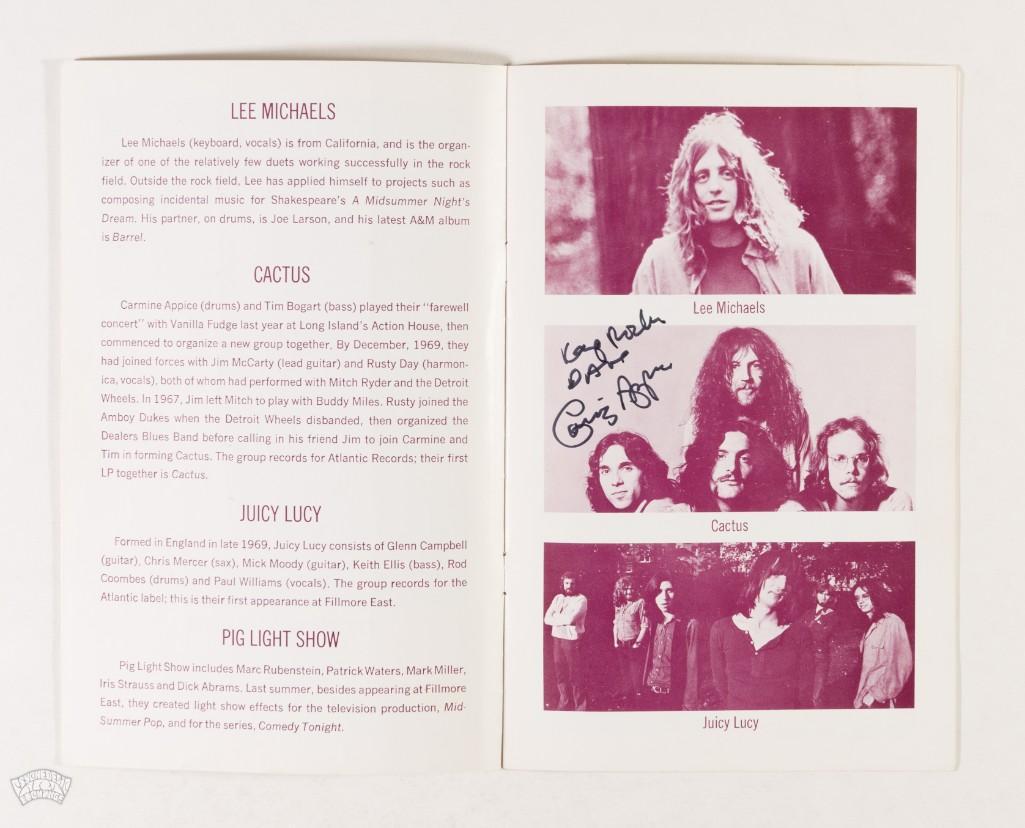 LEE MICHAELS
Lee Michaels (keyboard, vocals) is from California, and is the organ-
izer of one of the relatively few duets working successfully in the rock
field. Outside the rock field, Lee has applied himself to projects such as
composing incidental music for Shakespeare's A Midsummer Night's
Dream. His partner, on drums, is Joe Larson, and his latest A&M album
is Barrel.
CACTUS
Carmine Appice (drums) and Tim Bogart (bass) played their "farewell
concert" with Vanilla Fudge last year at Long Island's Action House, then
commenced to organize a new group together. By December, 1969, they
had joined forces with Jim McCarty (lead guitar) and Rusty Day (harmon-
ica, vocals), both of whom had performed with Mitch Ryder and the Detroit
Wheels. In 1967, Jim left Mitch to play with Buddy Miles. Rusty joined the
Amboy Dukes when the Detroit Wheels disbanded, then organized the
Dealers Blues Band before calling in his friend Jim to join Carmine and
Tim in forming Cactus. The group records for Atlantic Records; their first
LP together is Cactus.
JUICY LUCY
Formed in England in late 1969, Juicy Lucy consists of Glenn Campbell
(guitar), Chris Mercer (sax), Mick Moody (guitar), Keith Ellis (bass), Rod
Coombes (drums) and Paul Williams (vocals). The group records for the
Atlantic label; this is their first appearance at Fillmore East.
PIG LIGHT SHOW
Pig Light Show includes Marc Rubenstein, Patrick Waters, Mark Miller,
Iris Strauss and Dick Abrams. Last summer, besides appearing at Fillmore
East, they created light show effects for the television production, Mid-
Summer Pop, and for the series, Comedy Tonight.
Lee Michaels
Keep
Cactus
Juicy Lucy